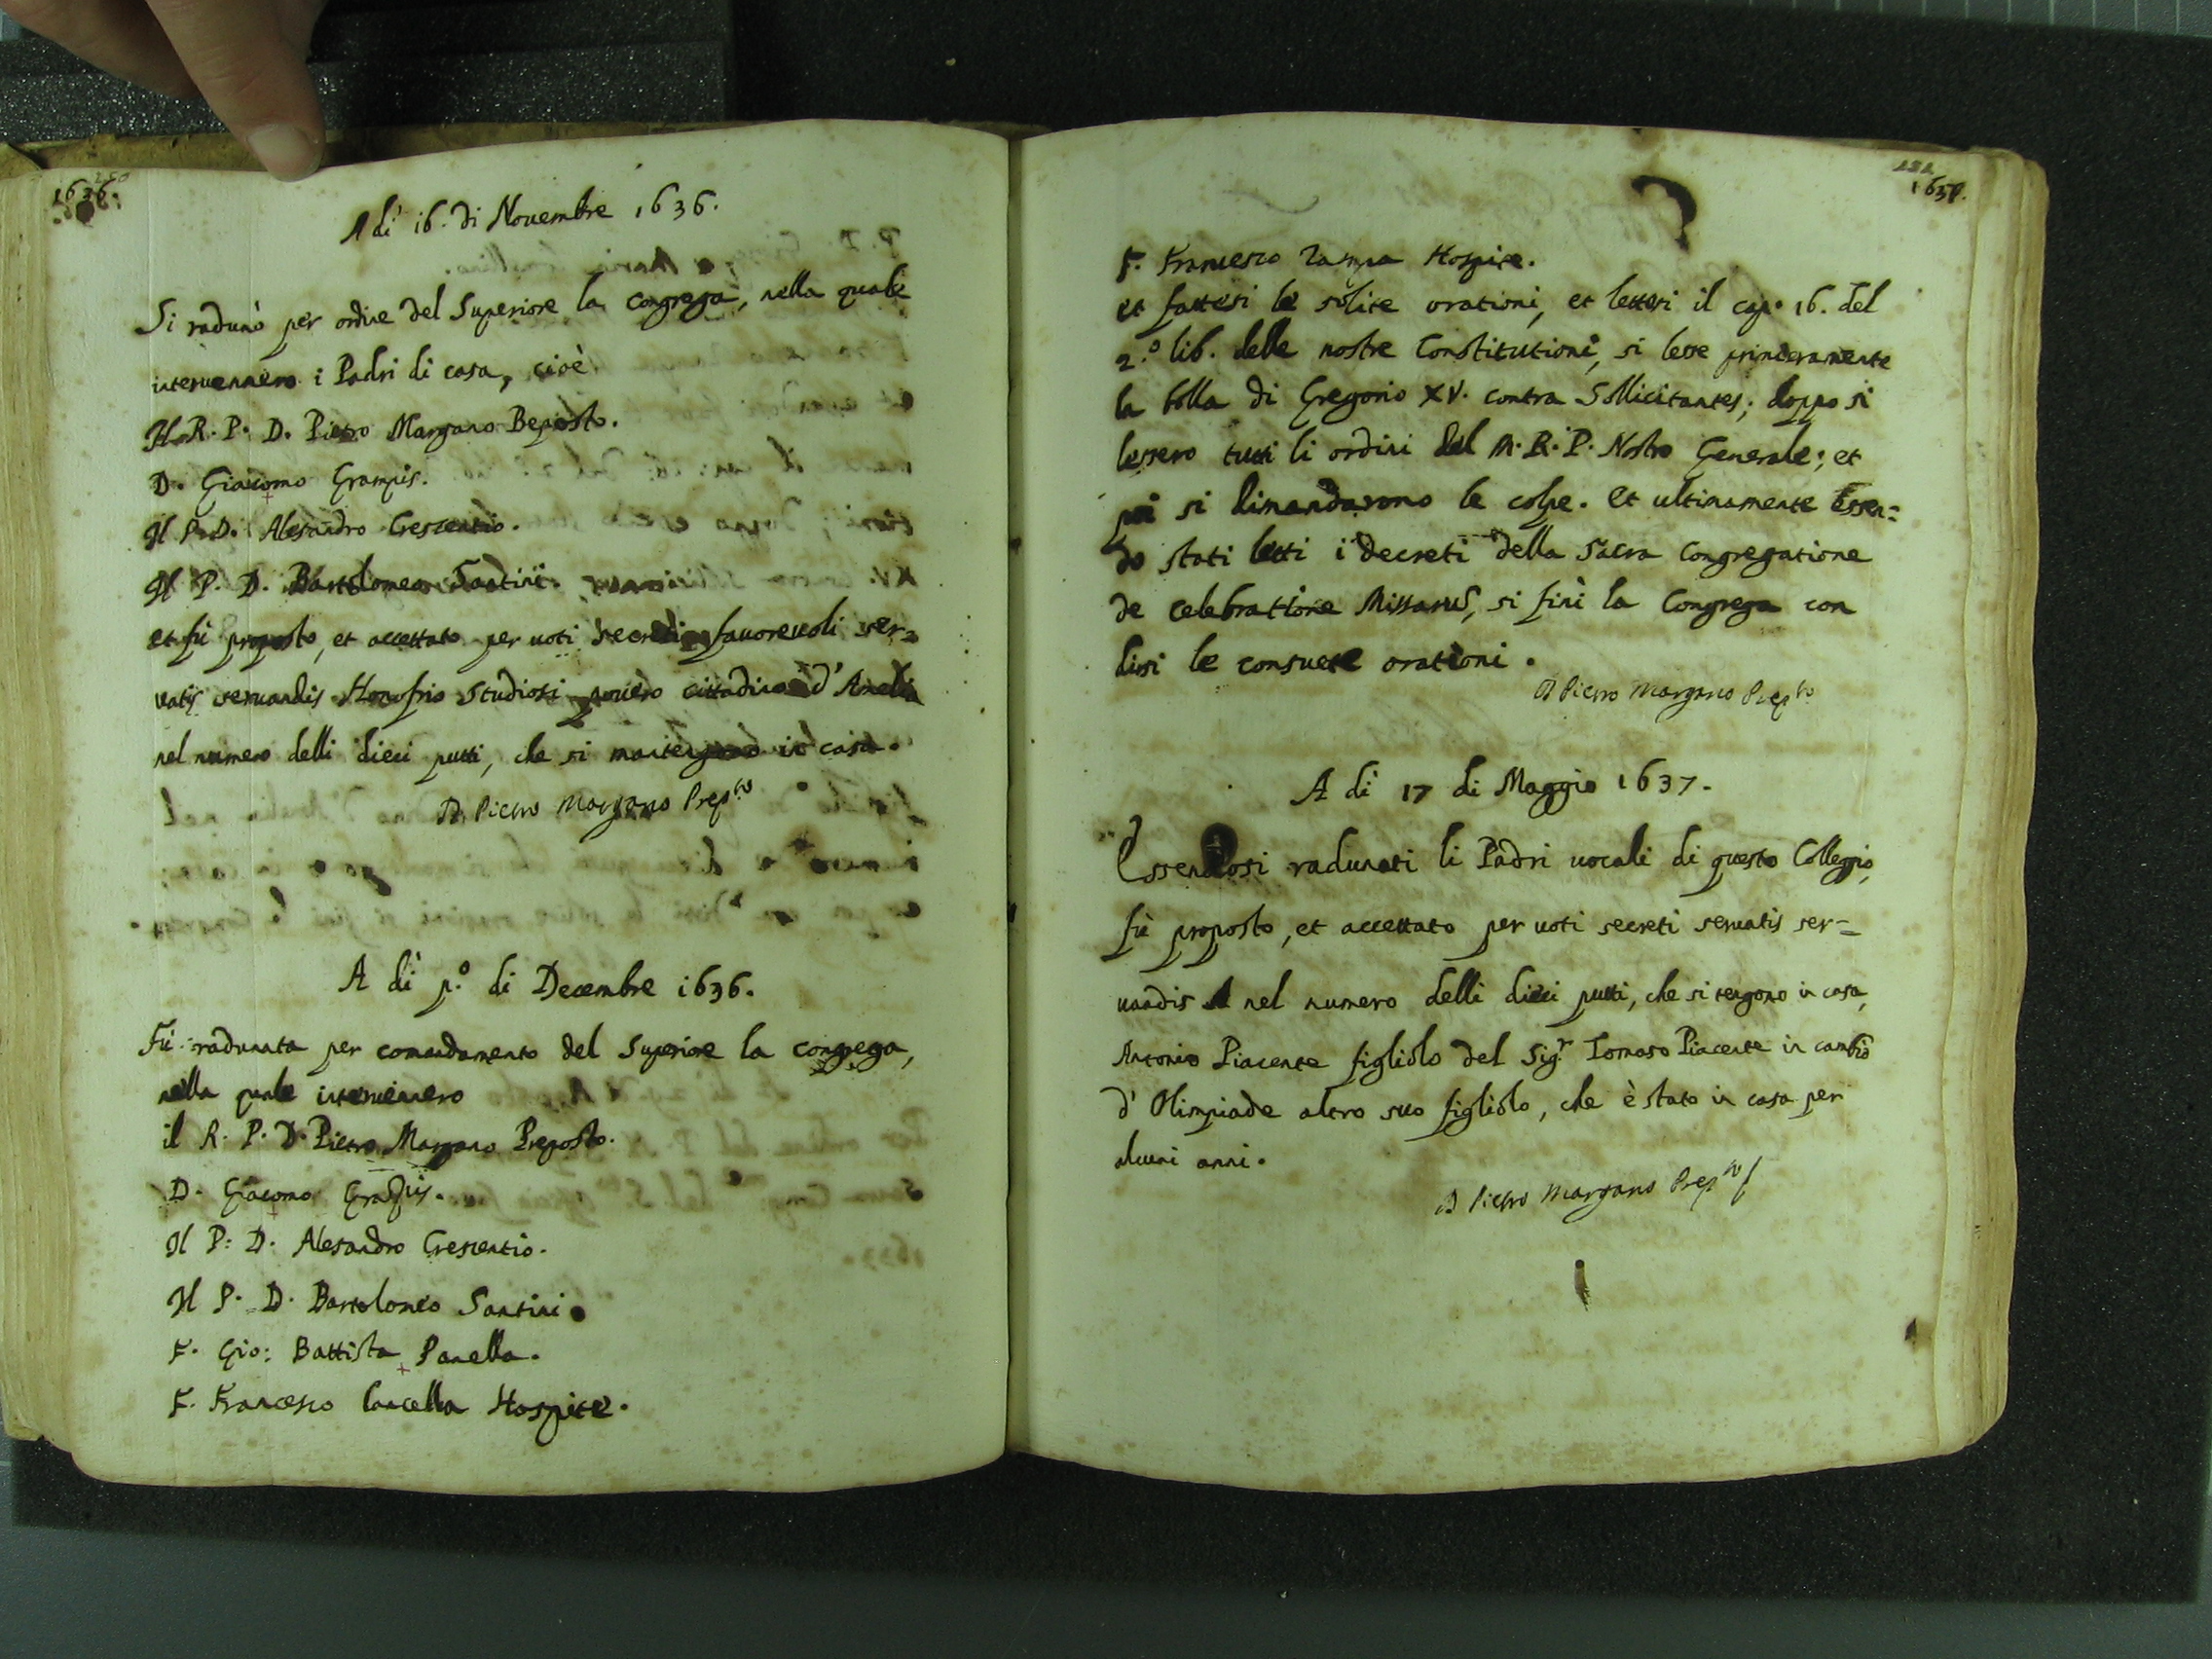 1636.
A di 16. di Nouembre 1636.
Si radunò per ordine del Superiore la congrega, nella quale
interuennero i Padri di casa, cioè
Il R. P. D. Pietro Margano Preposto.
D. Giacomo Grampis.
Il P. D. Alesandro Crescentio.
Il P. D. Bartolomeo Santini.
et fù proposto, et accettato per uoti secreti fauoreuoli ser=
uatis seruandis Honofrio Studiosi pouero cittadino d'Amelia
nel numero delli dieci putti, che si mantengono in casa.
D. Pietro Margano Prep.to
A dì p.º di Decembre 1636.
Fù radunata per comandamento del Superiore la congrega,
nella quale interuennero
il R. P. D. Pietro Margano Preposto.
D. Giacomo Grampis.
Il P. D. Alesandro Crescentio.
Il P. D. Bartolomeo Santini.
F. Gio: Battista Panella.
F. Francesco Cancella Hospite.
F. Francesco Zampa Hospite.
et fattesi le solite orationi, et lettosi il cap.º 16. del
2.º lib. delle nostre Constitutioni, si lesse primieramente
la bolla di Gregorio XV. contra Sollicitantes; doppo si
lessero tutti li ordini del M. R. P. Nostro Generale; et
poi si dimandarono le colpe. Et ultimamente Essen=
do stati letti i decreti della Sacra Congregatione
de celebratione Missarum, si finì la Congrega con
dirsi le consuete orationi.
D Pietro Margano Prep.to
A di 17 di Maggio 1637.
Essendosi radunati li Padri uocali di questo Collegio,
fù proposto, et accettato per uoti secreti seruatis ser=
uandis nel numero delli dieci putti, che si tengono in casa,
Antonio Piacente figliolo del Sig.r Tomaso Piacente in cambio
d'Olimpiade altro suo figliolo, che è stato in casa per
alcuni anni.
D Pietro Margano Prep.to